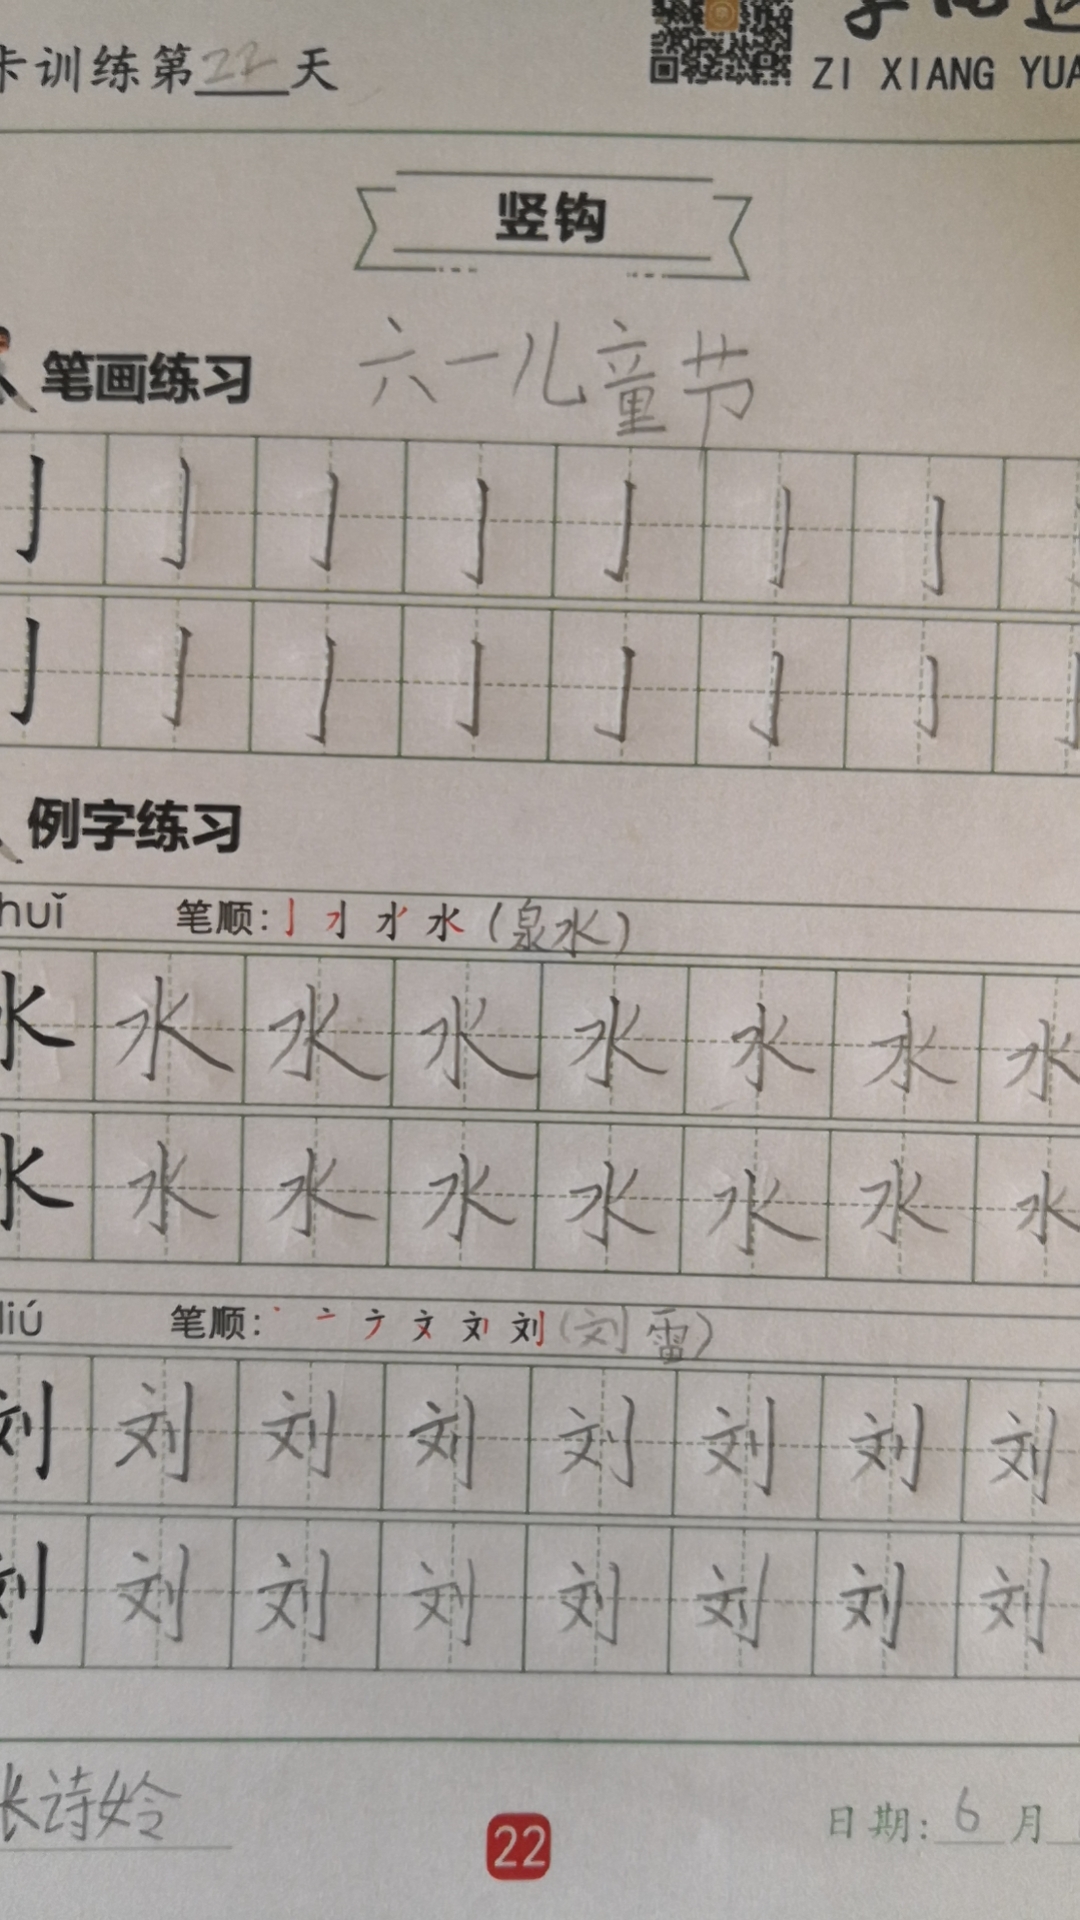 卡训练第22天
ZI XIANG YUA
竖钩
笔画练习 六一儿童节
亅亅亅亅亅亅亅亅
亅亅亅亅亅亅亅亅
例字练习
huǐ 笔顺: 水(泉水)
水水水水水水水水
水水水水水水水水
liú 笔顺: 刘(刘雷)
刘刘刘刘刘刘刘刘
刘刘刘刘刘刘刘刘
张诗姈
22
日期:6月